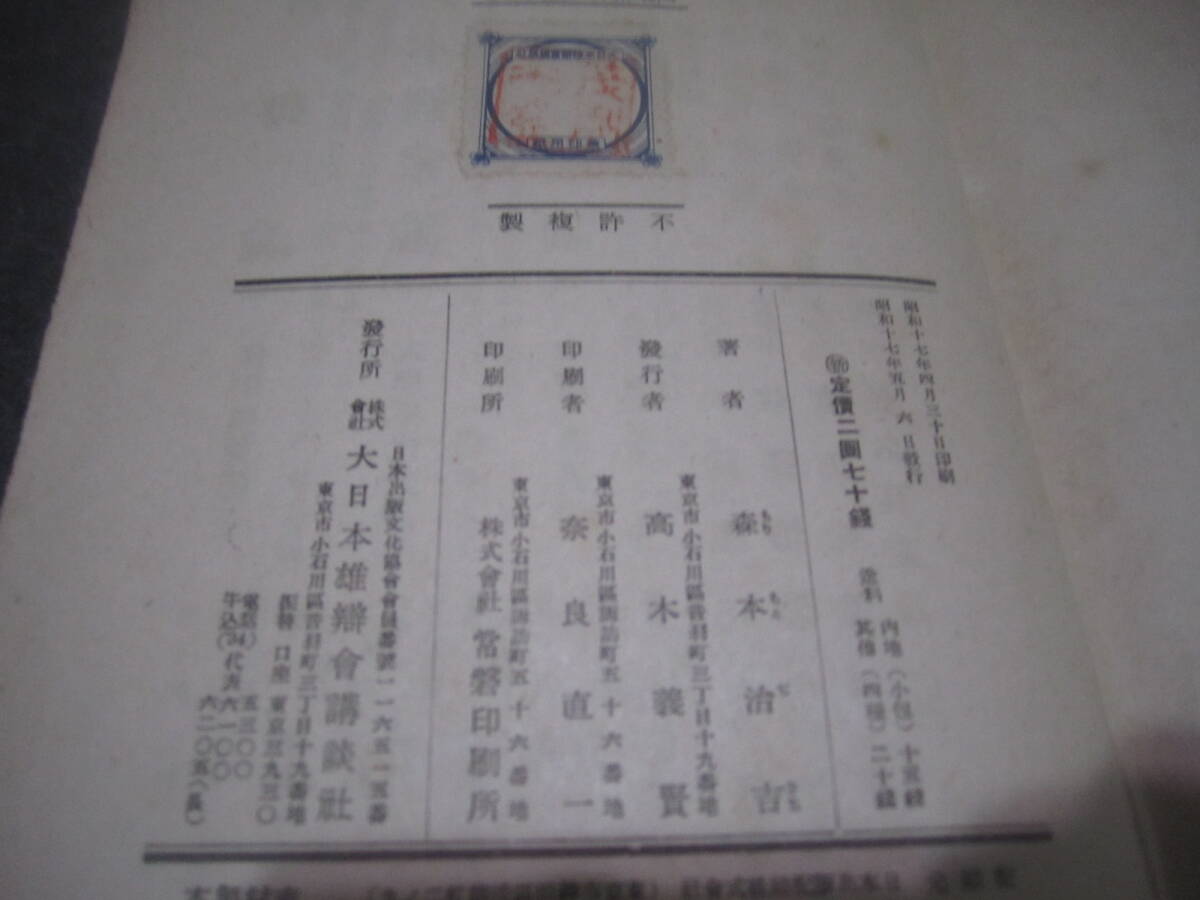 不許複製
昭和十七年四月三十日印刷
昭和十七年五月六日發行
定價二圓七十錢
送料
內地(小包)十五錢
其他(四種)二十錢
著者
森本治吉
もりもとぢきち
發行者
東京市小石川區音羽町三丁目十九番地
高木義賢
印刷者
東京市小石川區諏訪町五十六番地
奈良直一
印刷所
東京市小石川區諏訪町五十六番地
株式會社常磐印刷所
日本出版文化協會會員番號一一六五一五番
發行所
株式會社
大日本雄辯會講談社
東京市小石川區音羽町三丁目十九番地
振替口座東京三九三〇
電話
牛込(34)代表
五三〇〇
六一〇〇
六二〇五(長)